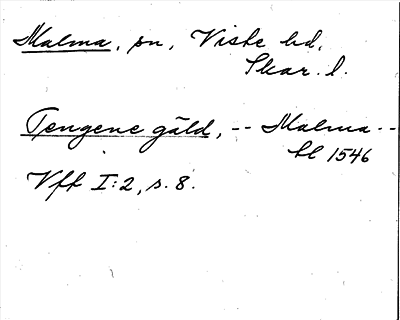 Malma, sn, Viste hd,
Skar. l.
Tengene gäld, -- Malma --
hl 1546
Vff I:2, s. 8.